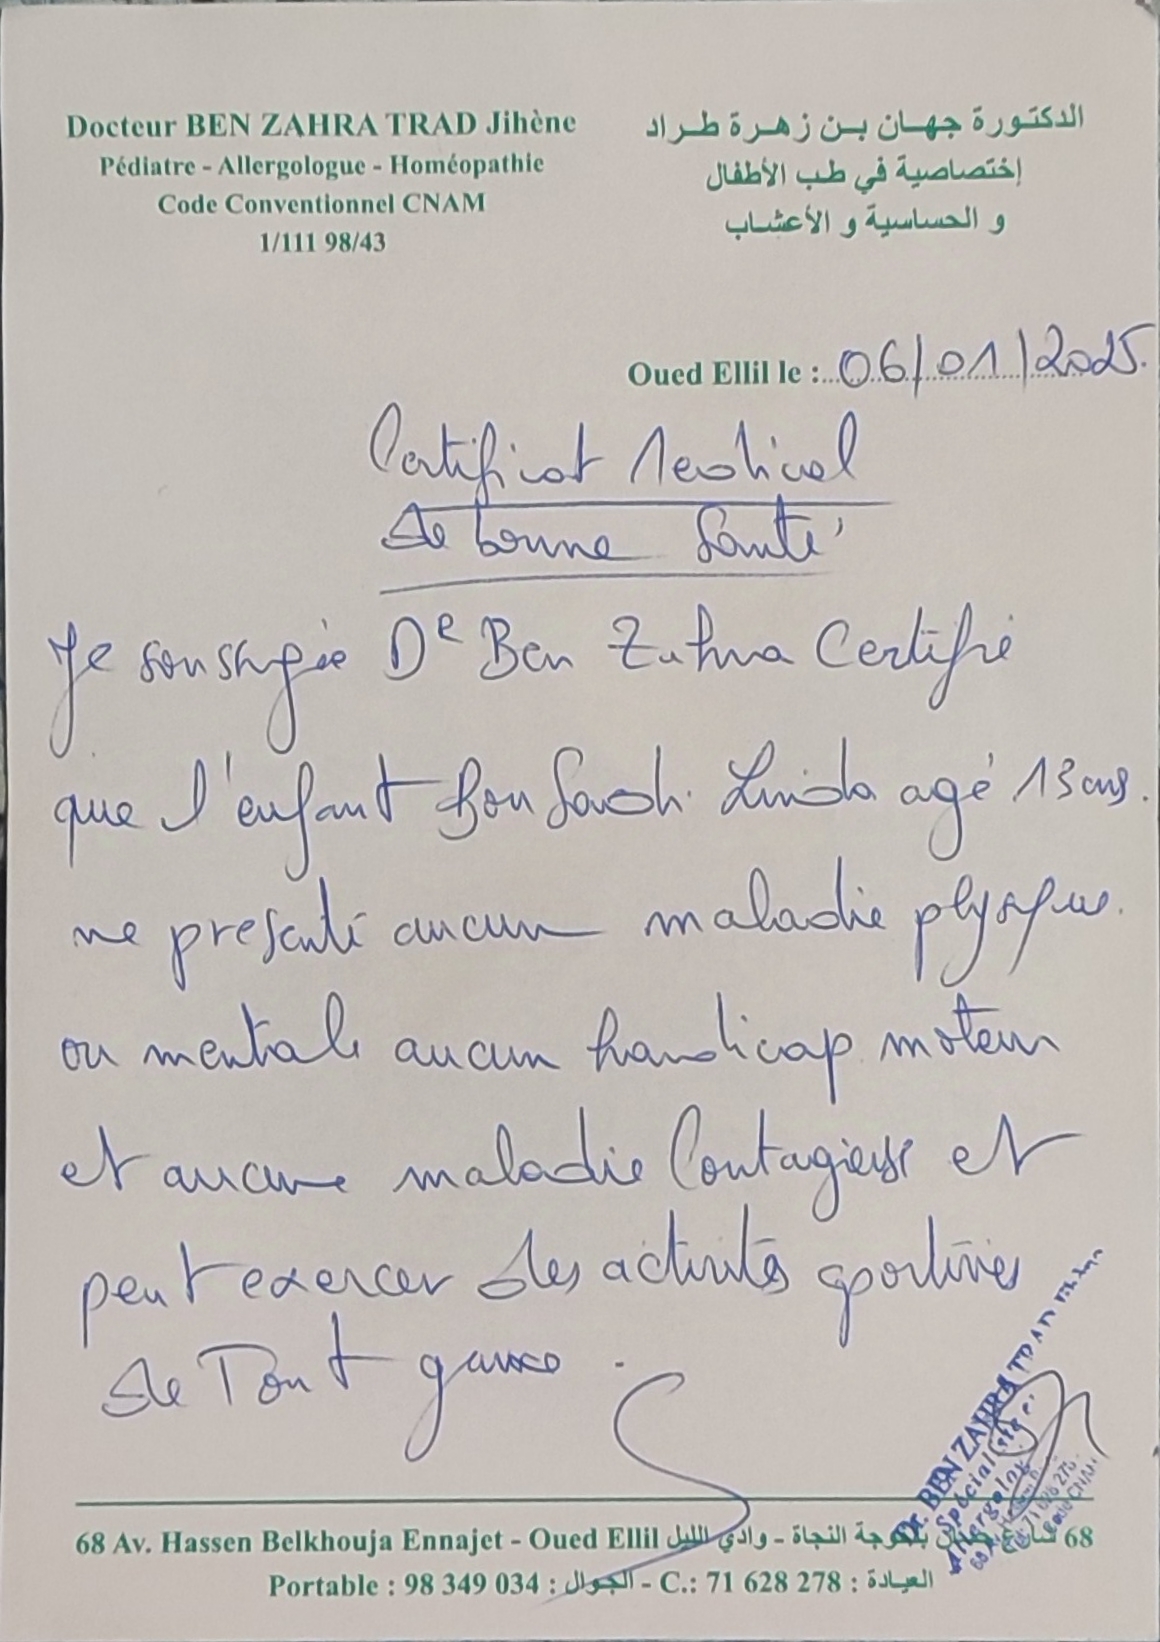 Docteur BEN ZAHRA TRAD Jihène
Pédiatre - Allergologue - Homéopathie
Code Conventionnel CNAM
1/111 98/43
الدكتورة جهان بن زهرة طراد
إختصاصية في طب الأطفال
و الحساسية و الأعشاب
Oued Ellil le : 06/01/2025.
Certificat Medical
de bonne Santé
Je soussignée Dr Ben Zahra Certifie
que l'enfant Linda agé 13 ans.
ne présente aucun maladie physique
ou mentale aucun handicap moteur
et aucune maladie Contagieuse et
peut exercer des activités sportives
de Tout
Dr. BEN ZAHRA TRAD
Spécialiste
68 Av. Hassen Belkhouja Ennajet - Oued Ellil 68 شارع حسان بلخوجة النجاة - وادي الليل
Portable : 98 349 034 : الجوال - C.: 71 628 278 : العيادة